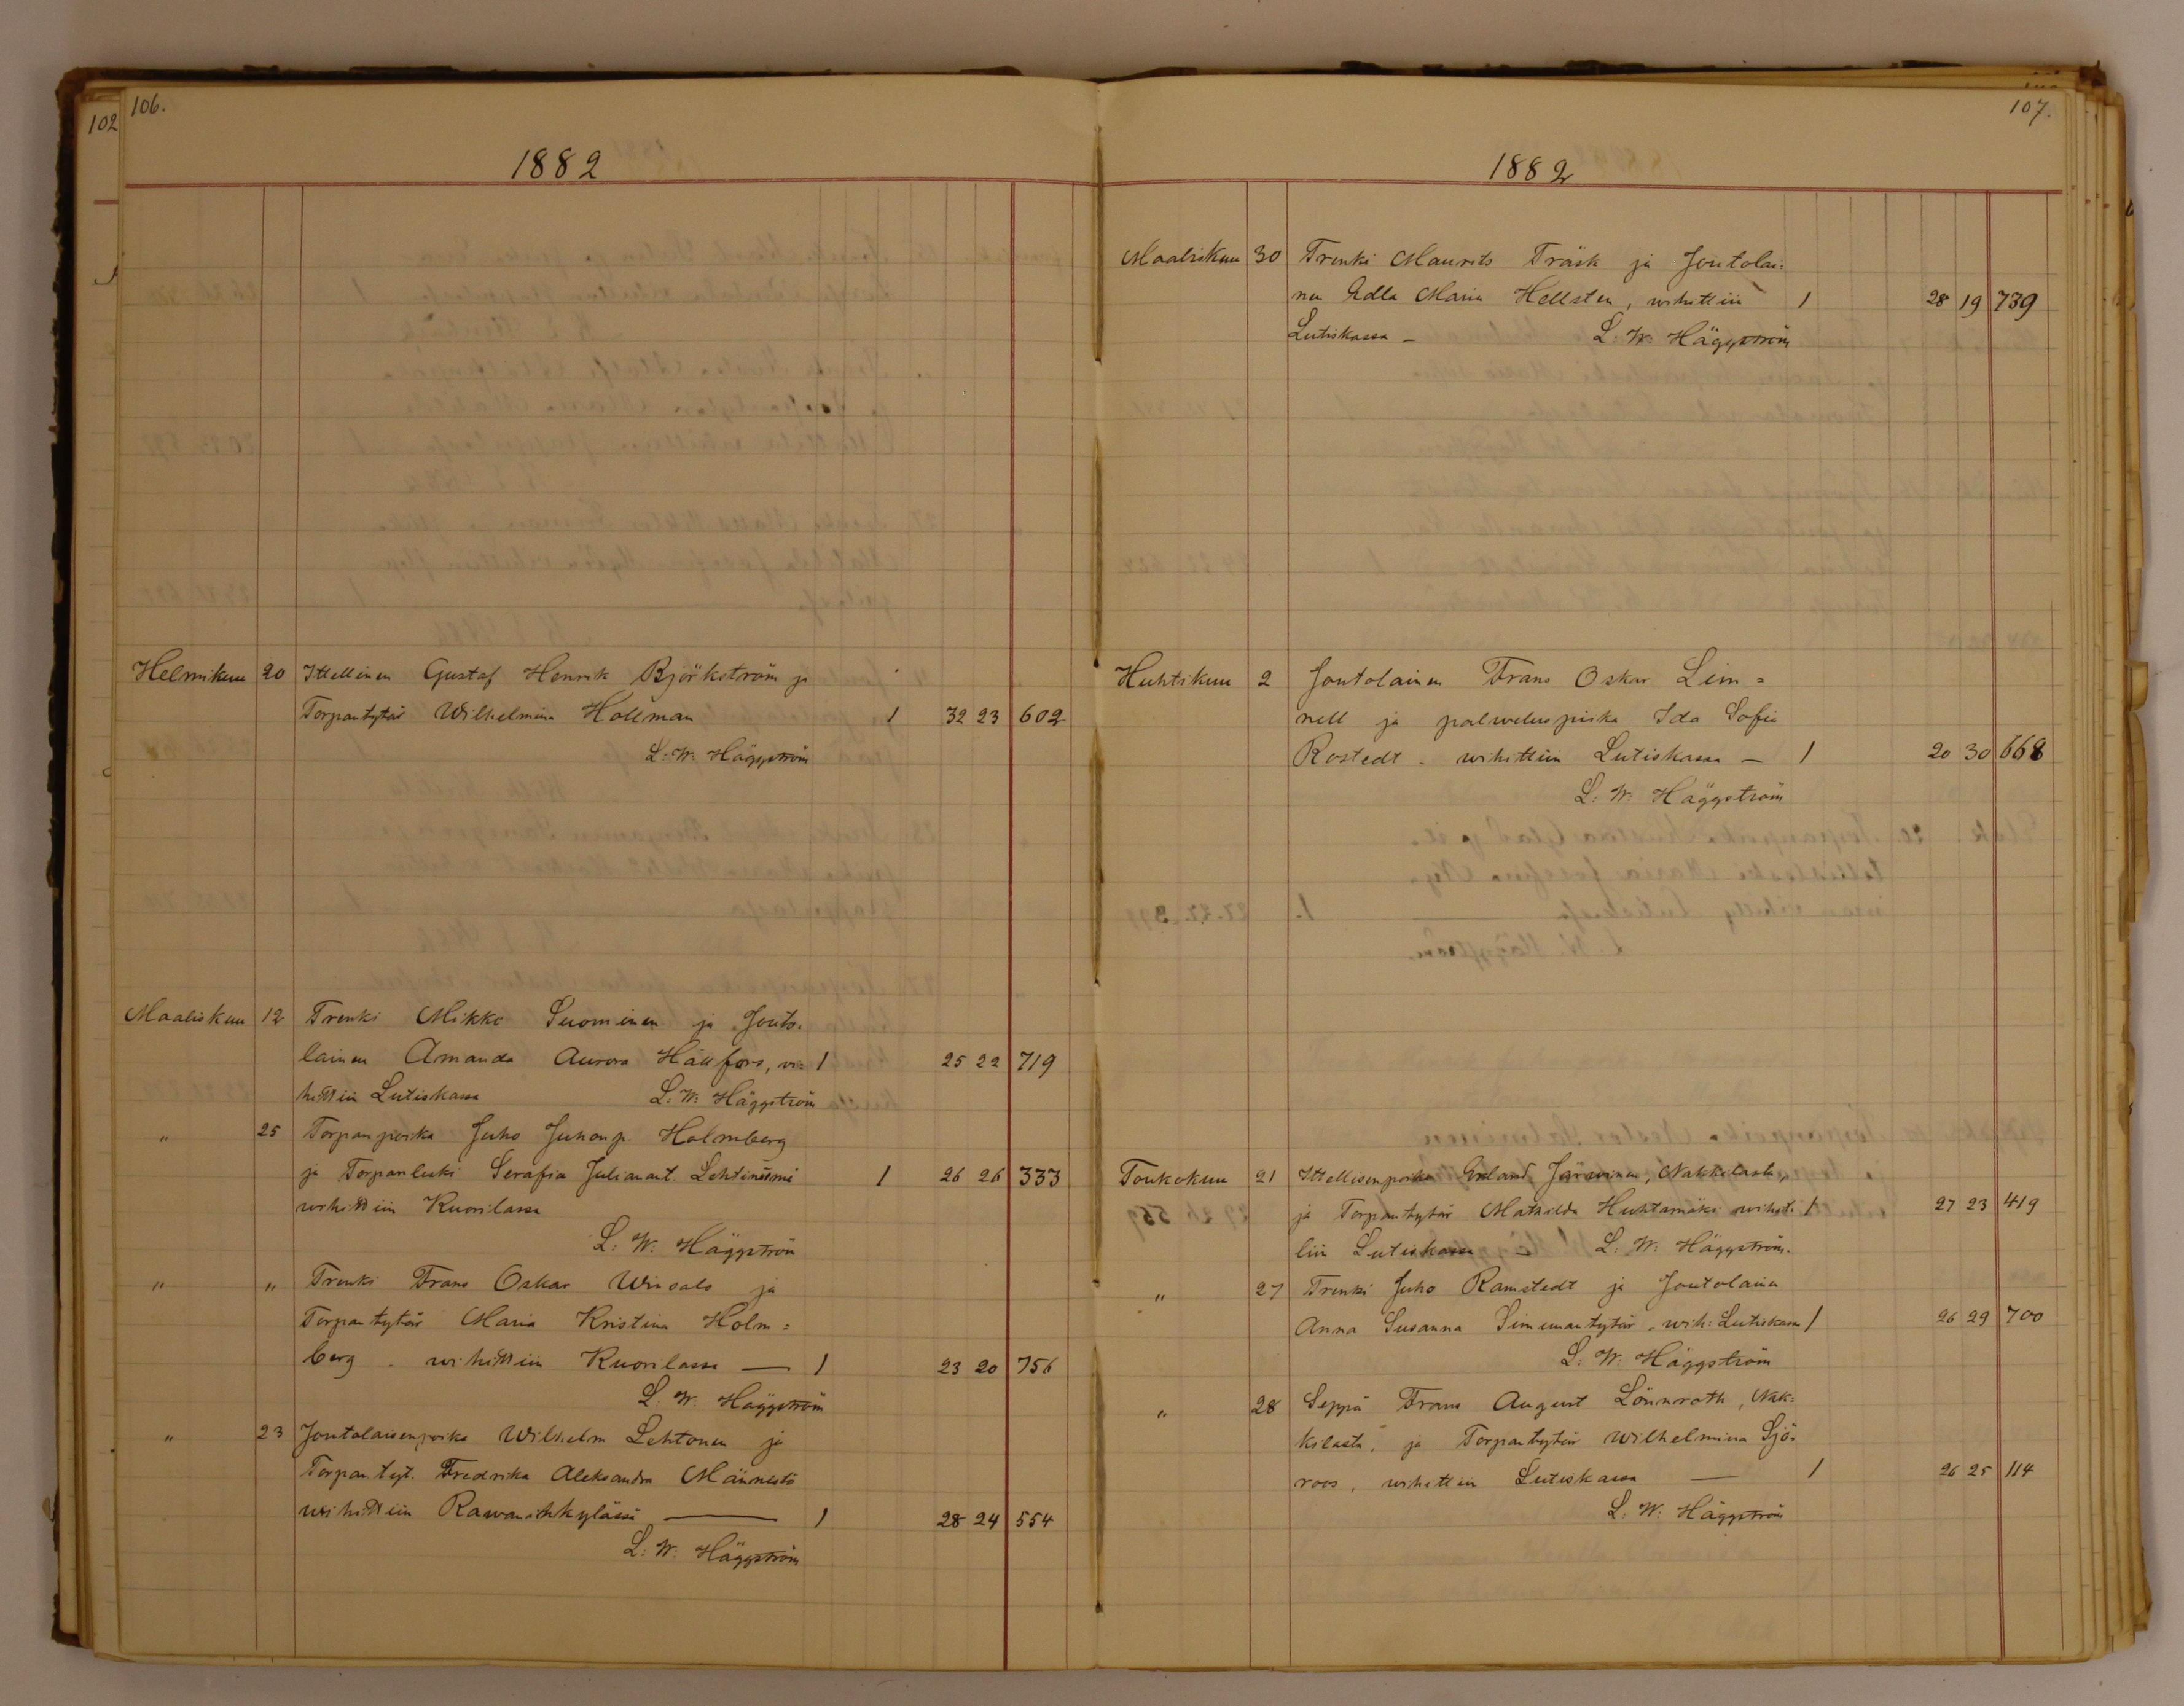 102
106.
1882
Helmikuu 20 Itsellinen Gustaf Henrik Björkström ja
Torpantytär Wilhelmina Hollman 1 32 23 602
L. W. Häggström
Maaliskuu 12 Trenki Mikko Suominen ja Jouto-
lainen Amanda Aurora Hällfors, vi= 1 25 22 719
hittiin Lutiskassa L. W. Häggström
" 25 Torpanpoika Juho Juhonp. Holmberg
ja Torpanleski Serafia Julianat. Lehtiniemi 1 26 26 333
wihittiin Kuorilassa
L. W. Häggström
" " Trenki Frans Oskar Winsalo ja
Torpantytär Maria Kristina Holm=
berg - wihittiin Kuorilassa — 1 23 20 756
L. W. Häggström
" 23 Joutolaisenpoika Wilhelm Lehtonen ja
Torpantyt. Fredrika Aleksandra Männestö
wihittiin Rawanikylässä — 1 28 24 554
L. W. Häggström
107.
1882
Maaliskuu 30 Trenki Maurits Träsk ja Joutolai=
nen Edla Maria Hellsten, wihittiin 1 28 19 739
Lutiskassa — L. W. Häggström
Huhtikuu 2 Joutolainen Frans Oskar Lin=
nell ja palweluspiika Ida Sofia
Rostedt - wihittiin Lutiskassa — 1 20 30 668
L. W. Häggström
Toukokuu 21 Itsellisenpoika Erland Järwinen, Nakkilasta,
ja Torpantytär Mathilda Huhtamäki wihit- 1 27 23 419
tiin Lutiskassa — L. W. Häggström.
" 27 Trenki Juho Ramstedt ja Joutolainen
Anna Susanna Simunantytär - wih: Lutiskassa 1 26 29 700
L. W. Häggström
" 28 Seppä Frans August Lönnroth, Nak=
kilasta, ja Torpantytär Wilhelmina Sjö=
roos, wihittiin Lutiskassa — 1 26 25 114
L. W. Häggström